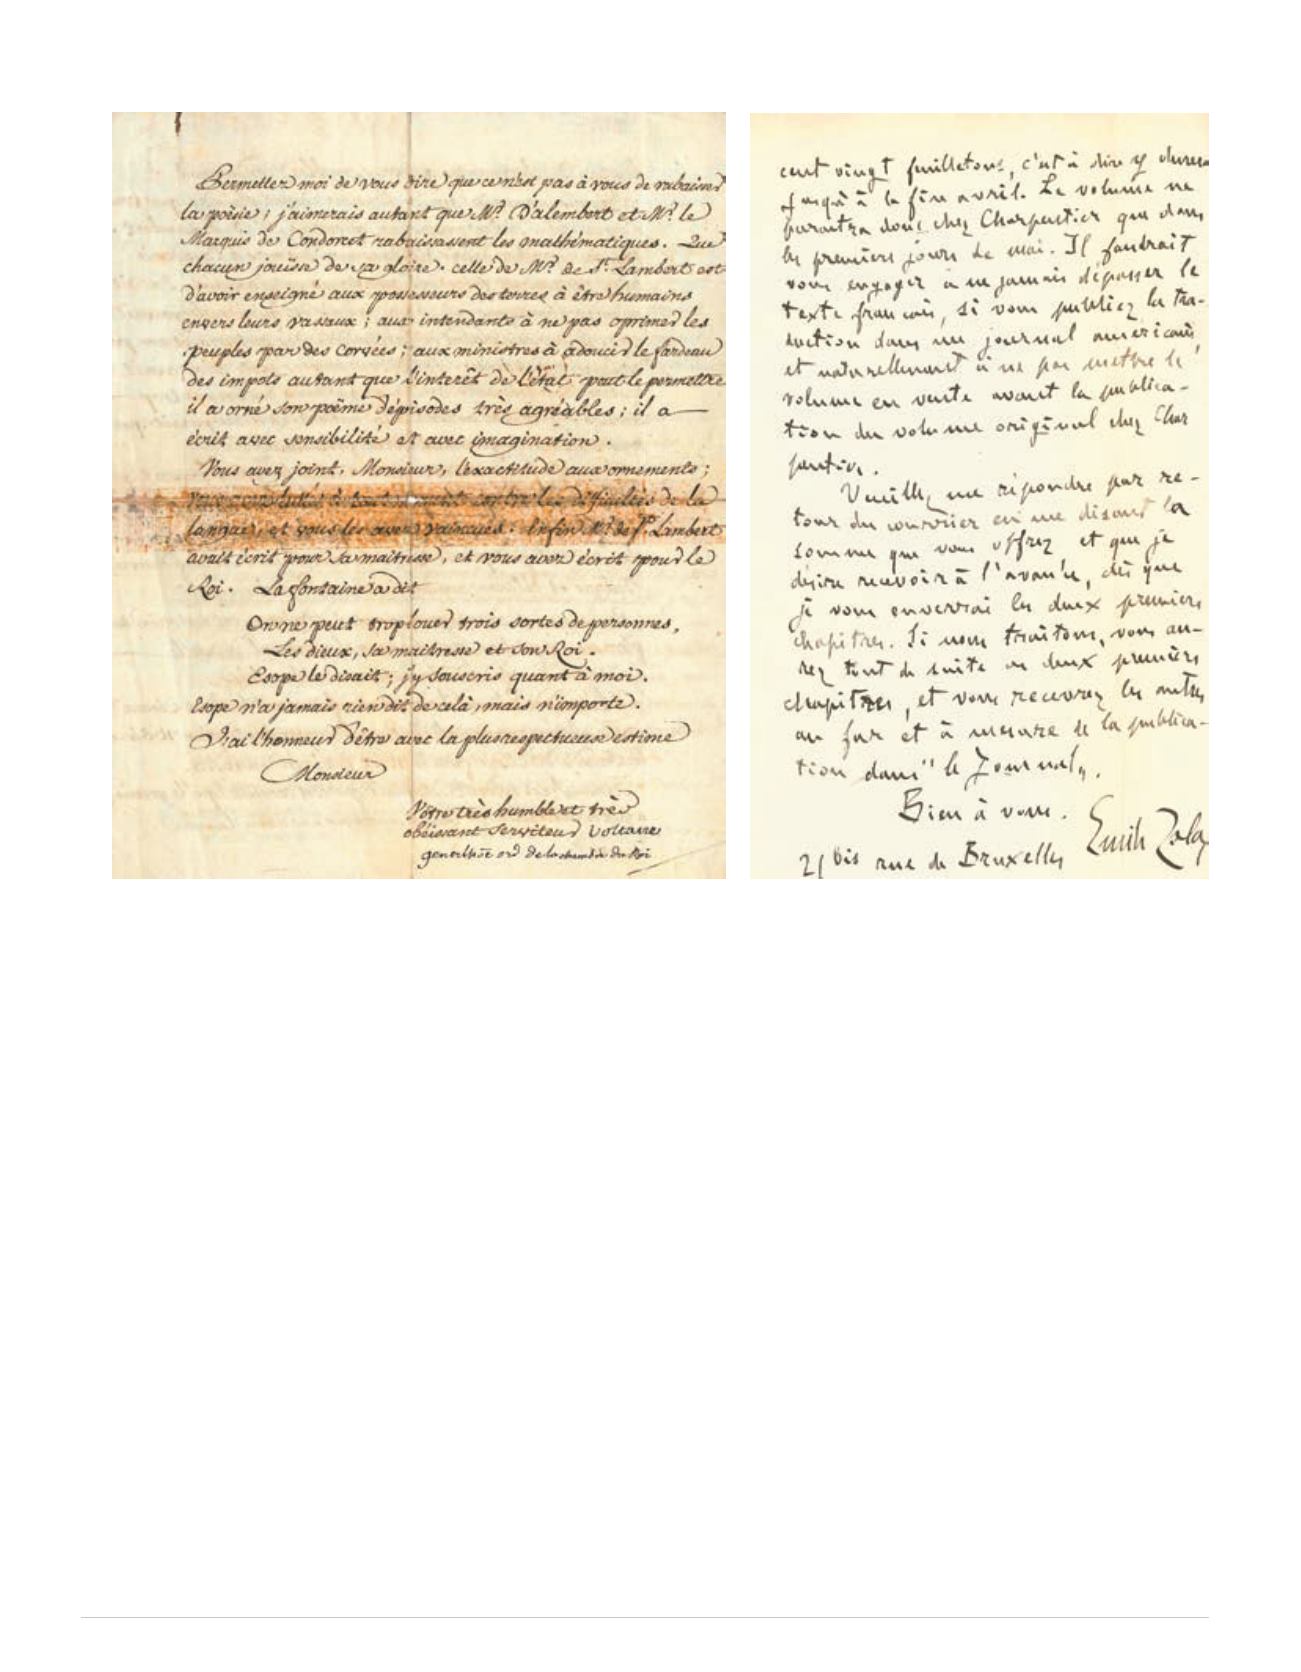 Permettez moi de vous dire que ce n'est pas à vous de rabaisser
la poësie ; j'aimerais autant que Mr. D'alembert et Mr. le
Marquis de Condorcet rabaissassent les mathématiques. Que
chacun jouïsse de sa gloire. celle de Mr. de St. Lambert est
d'avoir enseigné aux possesseurs des terres à être humains
envers leurs vassaux ; aux intendants à ne pas oprimer les
peuples par des corvées ; aux ministres à adoucir le fardeau
des impots autant que l'interêt de l'état peut le permettre
il a orné son poëme d'épisodes très agréables ; il a
écrit avec sensibilité et avec imagination.
Vous avez joint, Monsieur, l'exactitude aux ornements ;
vous avez lutté à tout moment contre les difficultés de la
langue, et vous les avez vaincues. Enfin Mr. de St. Lambert
avait écrit pour sa maitresse, et vous avez écrit pour le
Roi. La fontaine a dit
On ne peut trop louer trois sortes de personnes,
Les dieux, sa maitresse et son Roi.
Esope le disait ; j'y souscris quant à moi.
Esope n'a jamais rien dit de celà, mais n'importe.
J'ai l'honneur d'être avec la plus respectueuse estime
Monsieur
Vôtre très humble et très
obéissant serviteur Voltaire
gentilhõe ord de la chambre du Roi
cent vingt feuilletons, c'est à dire y durera
jusqu'à la fin avril. Le volume ne
paraîtra donc chez Charpentier que dans
les premiers jours de mai. Il faudrait
vous engager à ne jamais dépasser le
texte français, si vous publiez la tra-
duction dans un journal américain,
et naturellement à ne pas mettre le
volume en vente avant la publica-
tion du volume original chez Char
pentier.
Veuillez me répondre par re-
tour du courrier en me disant la
somme que vous offrez et que je
désire recevoir à l'avance, dès que
je vous enverrai les deux premiers
chapitres. Si nous traitons, vous au-
rez tout de suite ces deux premiers
chapitres, et vous recevrez les autres
au fur et à mesure de la publica-
tion dans "le Journal".
Bien à vous.
Emile Zola
21 bis rue de Bruxelles